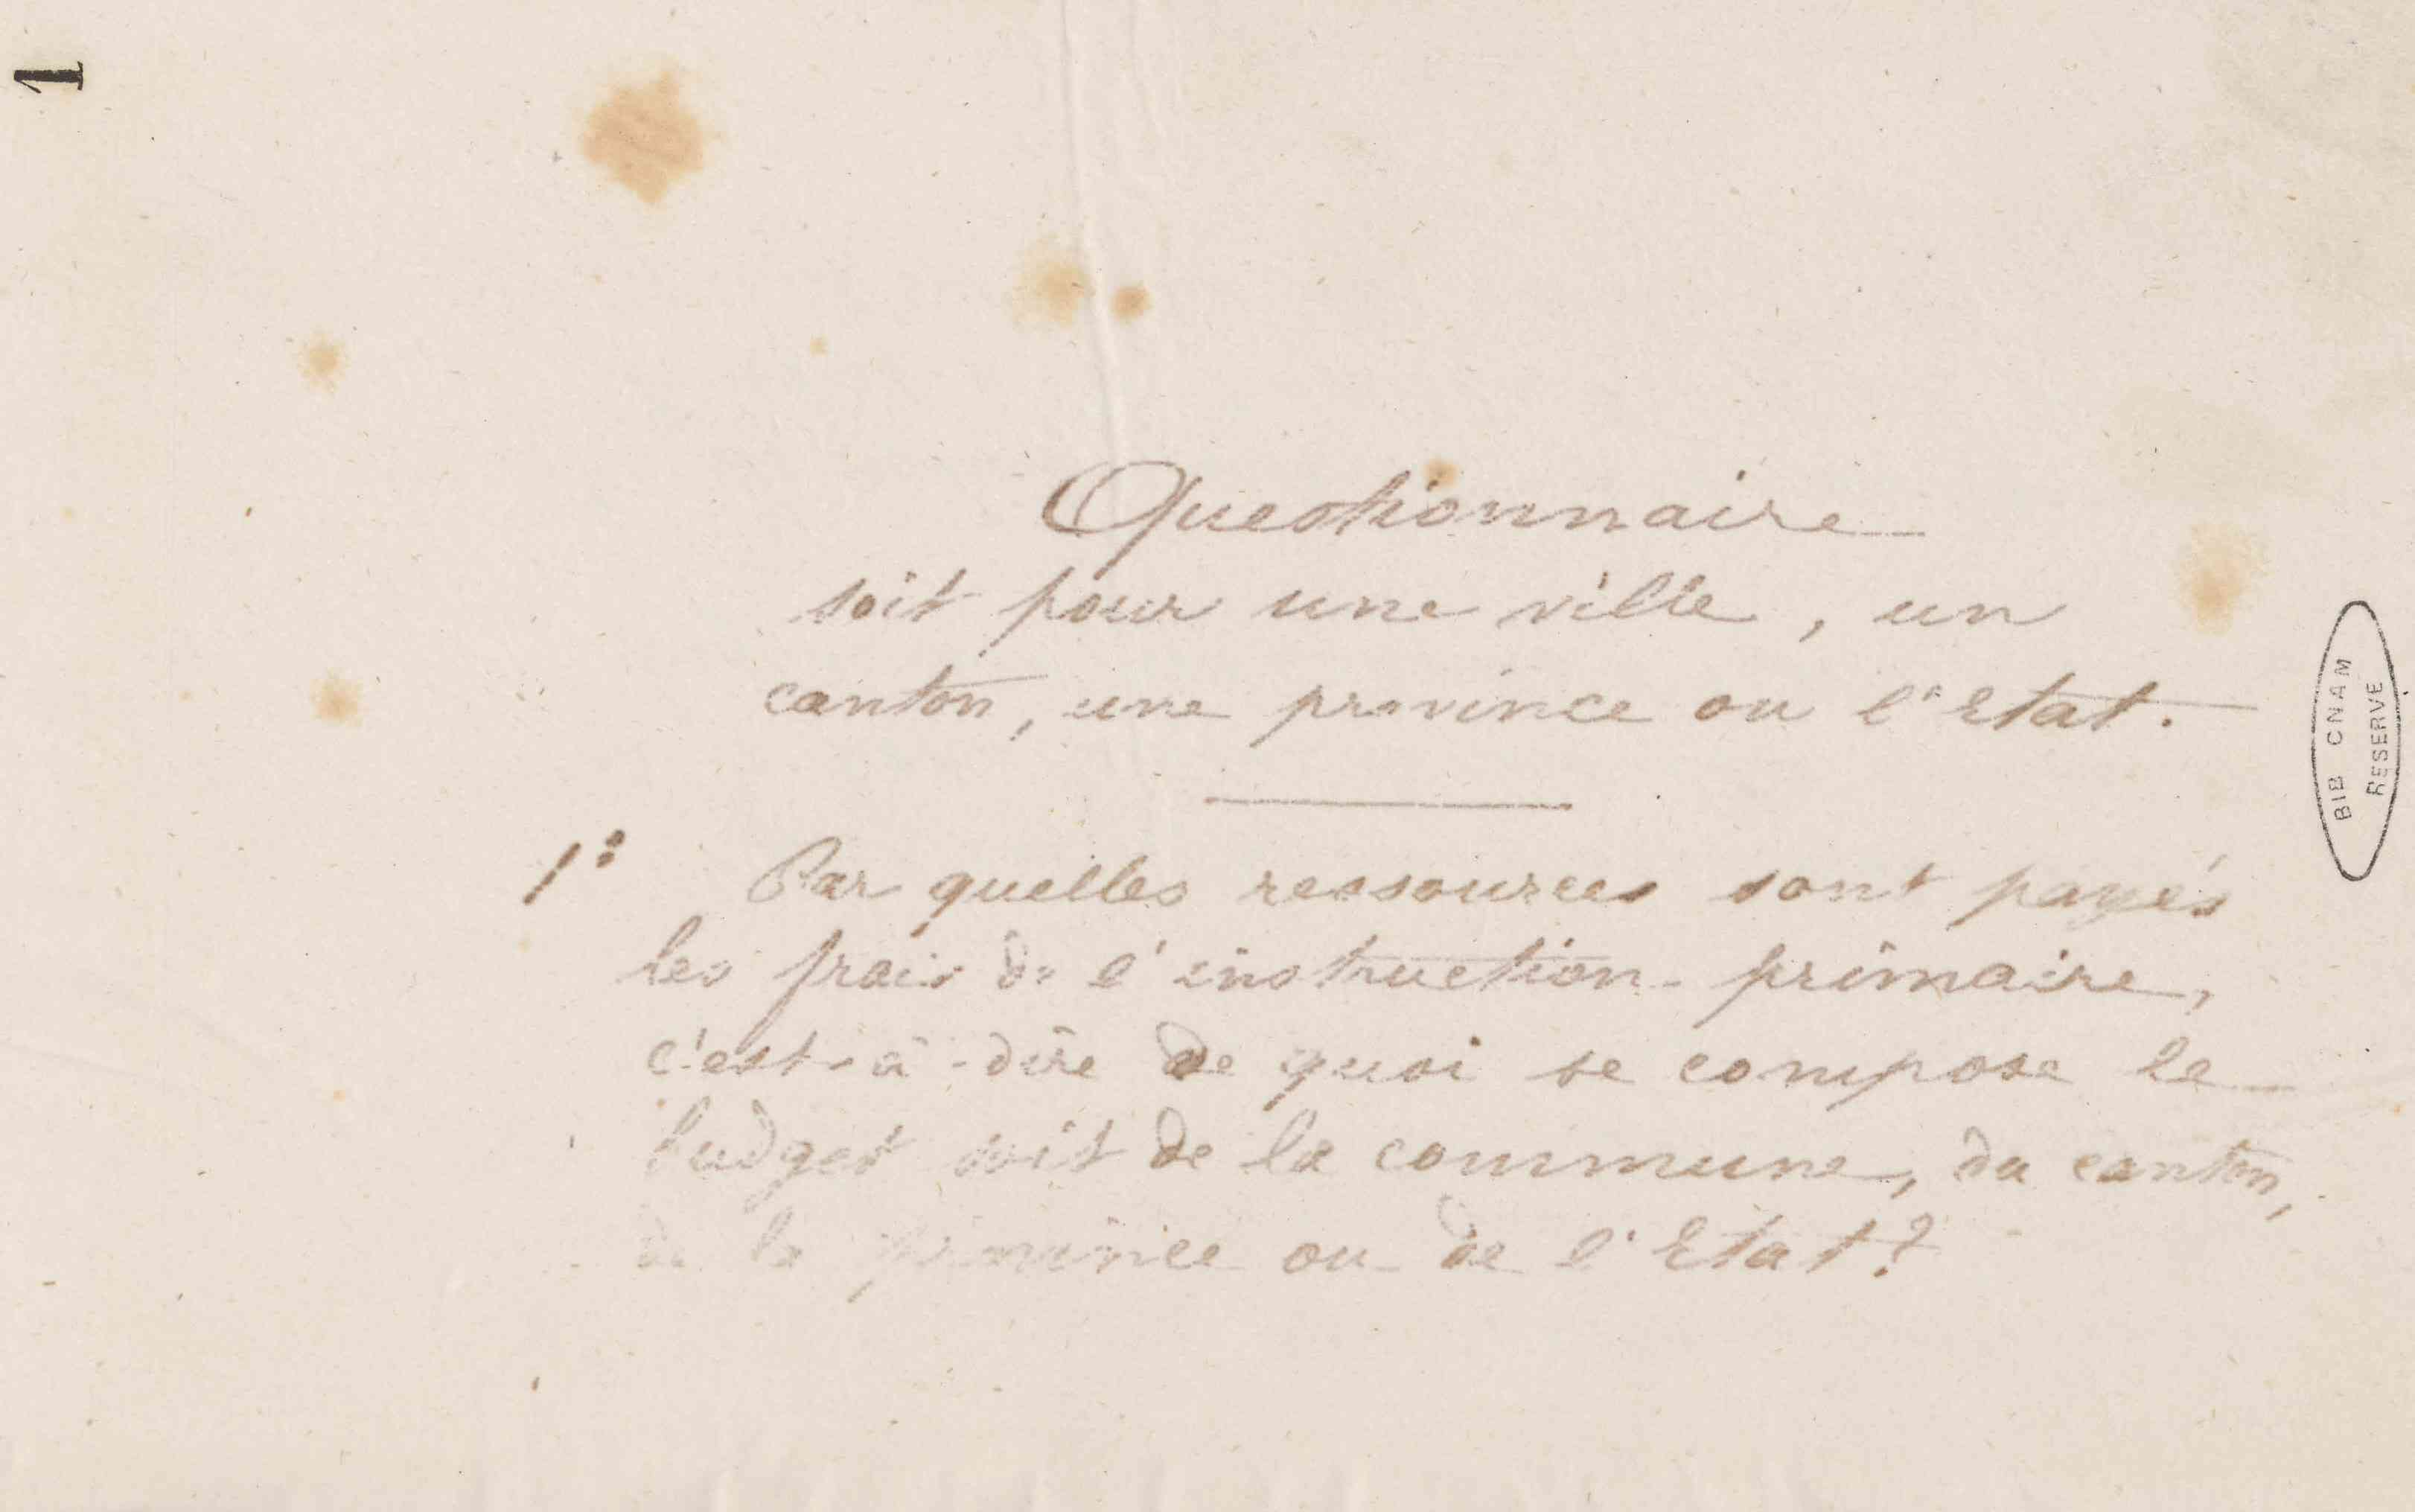 1
Questionnaire
soit pour une ville, un
canton, une province ou l'Etat.
1° Par quelles ressources sont payés
les frais de l'instruction primaire,
c'est-à-dire de quoi se compose le
budget soit de la commune, du canton,
de la province ou de l'Etat?
BIB CNAM
RESERVE